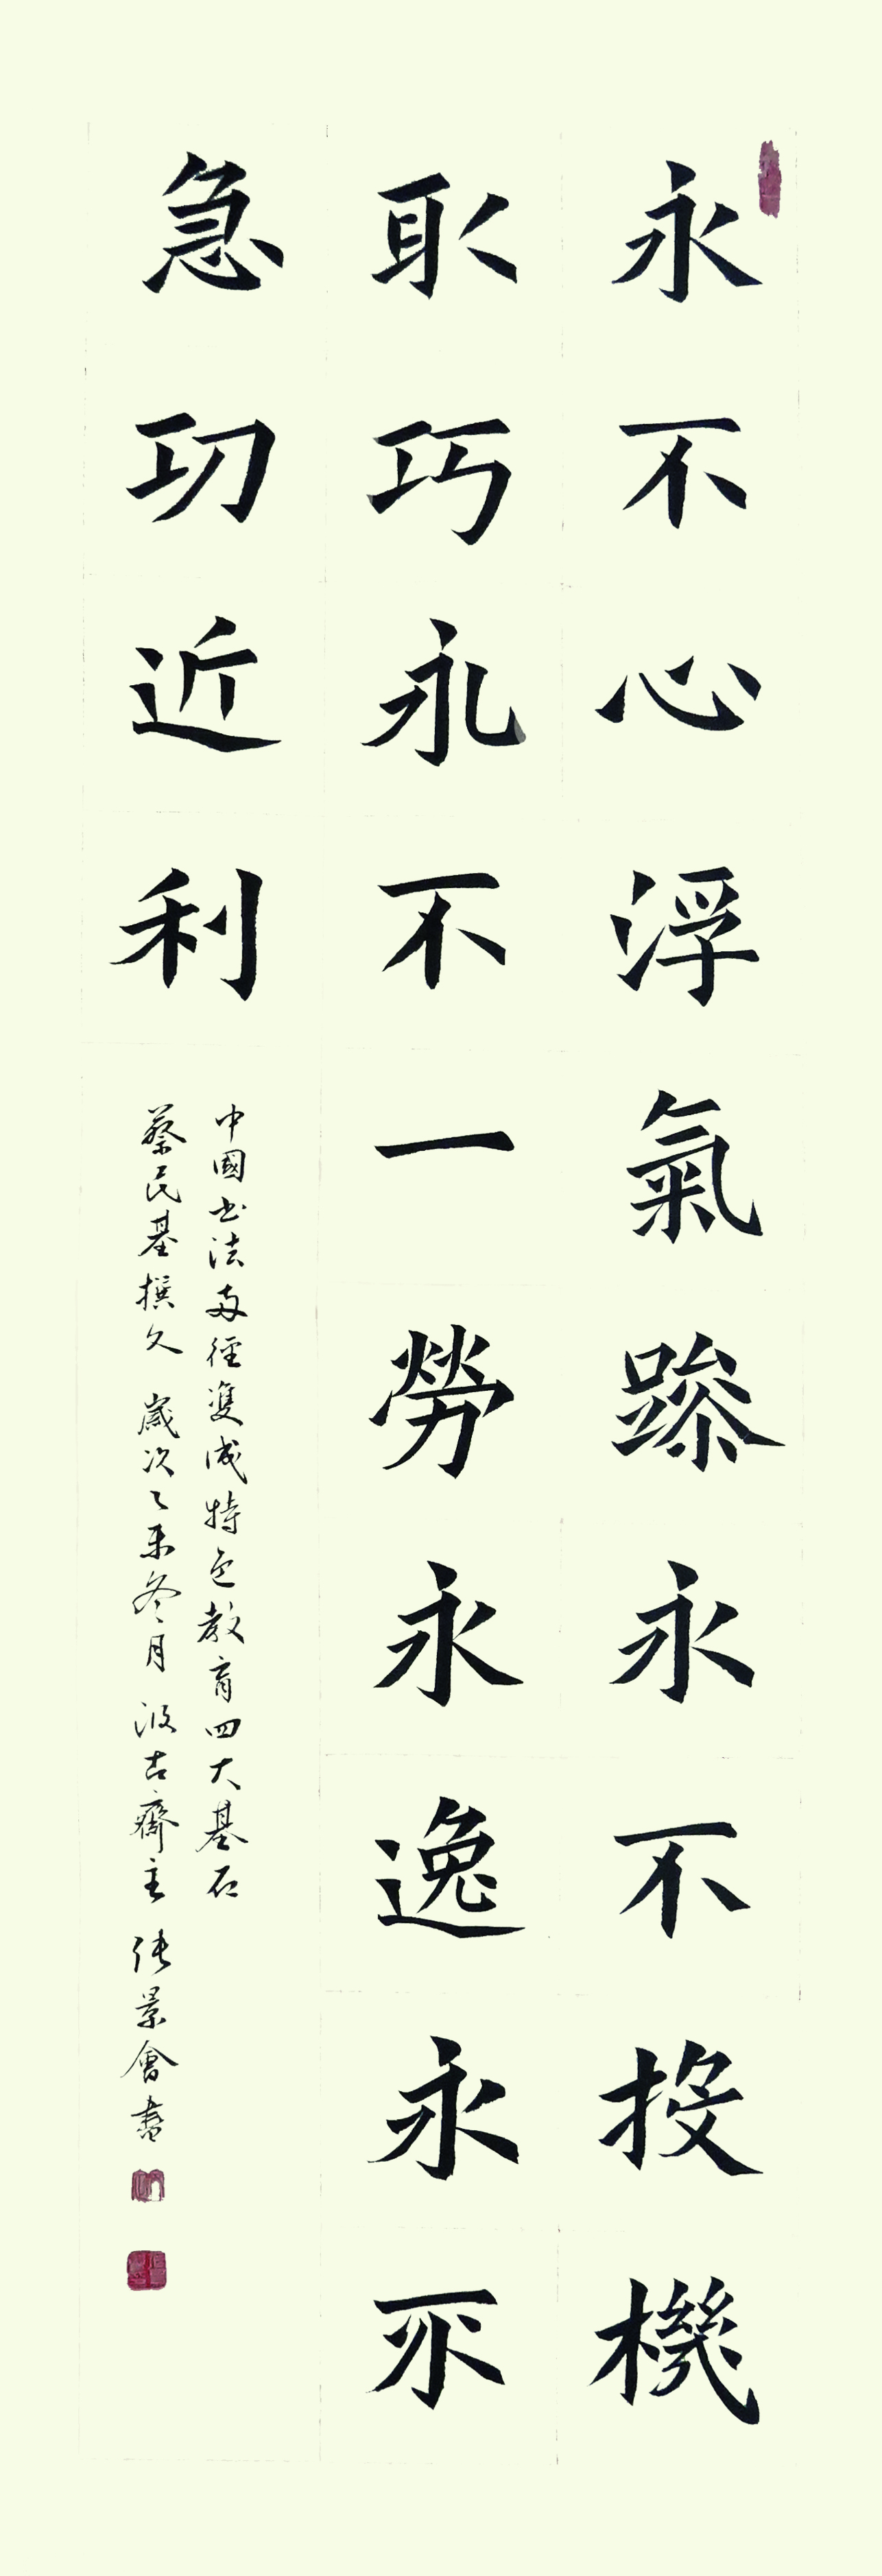 永不心浮氣躁永不投機
取巧永不一勞永逸永不
急功近利
中國书法两徑雙成特色教育四大基石
蔡民基撰文 歲次乙未冬月 汲古齋主 張景會書